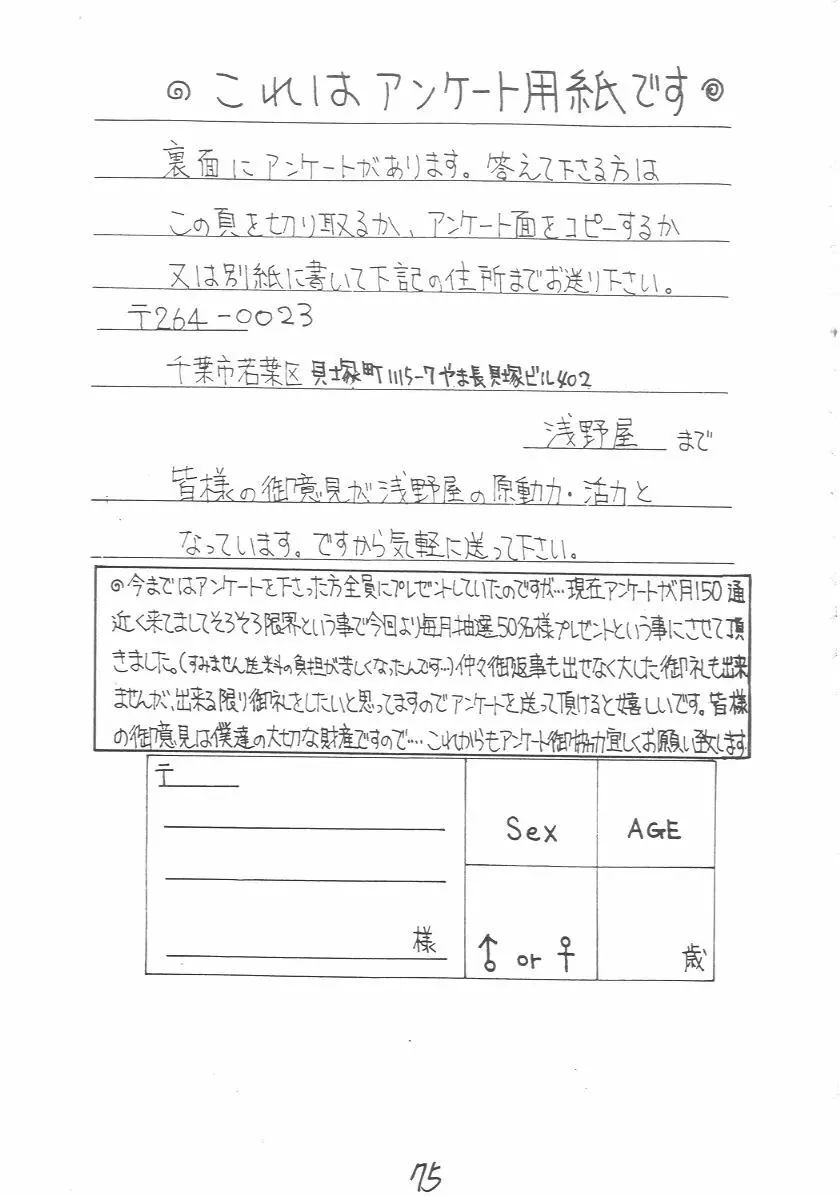 ◎ これは アンケート用紙です ◎
裏面にアンケートがあります。答えて下さる方は
この頁を切り取るか、アンケート面をコピーするか
又は別紙に書いて下記の住所までお送り下さい。
〒264-0023
千葉市若葉区 貝塚町1115-7やま長貝塚ビル402
浅野屋 まで
皆様の御意見が浅野屋の原動力・活力と
なっています。ですから気軽に送って下さい。
◎今まではアンケートを下さった方全員にプレゼントしていたのですが…現在アンケートが月150通
近く来てましてそろそろ限界という事で今回より毎月抽選50名様プレゼントという事にさせて頂
きました。(すみません送料の負担が苦しくなったんです…)仲々御返事も出せなく大した御礼も出来
ませんが、出来る限り御礼をしたいと思ってますのでアンケートを送って頂けると嬉しいです。皆様
の御意見は僕達の大切な財産ですので…これからもアンケート御協力宜しくお願い致します
〒
Sex AGE
様 ♂ or ♀ 歳
75